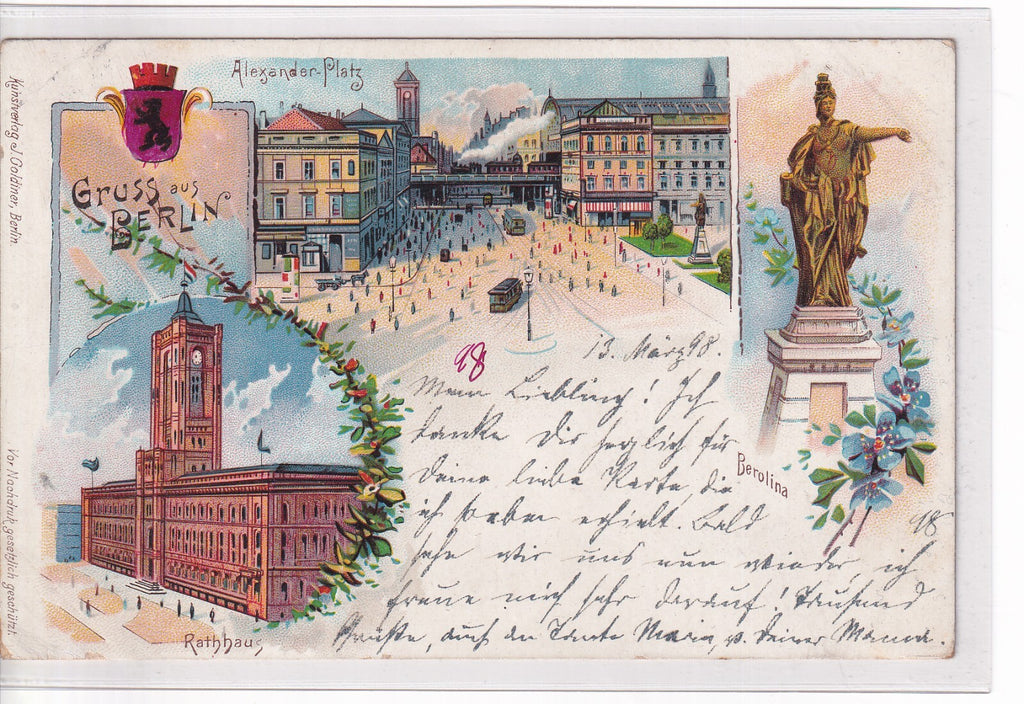 Kunstverlag J. Goldiner, Berlin
Vor Nachdruk gesetzlich geschützt.
Gruss aus
Berlin
Alexander-Platz
Rathhaus
Berolina
98
13. März 98.
Mein Liebling! Ich
danke Dir herzlich für
Deine liebe Karte, die
ich soeben erhielt. Bald
sehn wir uns nun wieder, ich
freue mich sehr darauf! Tausend
Grüße, auch an Tante Maria, u. Deiner Mama.
98